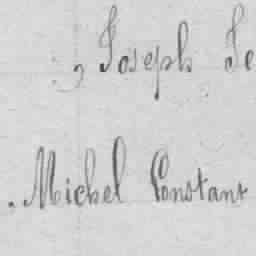 , Joseph Je
. Michel Constant